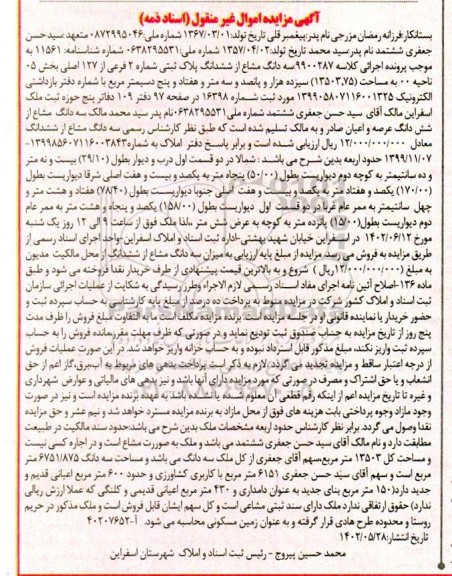 آگهی مزایده اموال غیر منقول (اسناد ذمه)
بستانکار:فرزانه رمضان مزرجی نام پدر:پیغمبر قلی تاریخ تولد:۱۳۶۷/۰۳/۰۱ شماره ملی:۰۸۷۲۹۹۵۰۴۶ متعهد سید حسن
جعفری ششتمد نام پدرسید محمد تاریخ تولد:۱۳۵۷/۰۴/۰۲ شماره ملی:۰۶۳۸۲۹۵۵۳۱ شماره شناسنامه: ۱۱۵۶۱ به
موجب پرونده اجرائی کلاسه ۹۹۰۰۲۸۷سه دانگ مشاع از ششدانگ پلاک ثبتی شماره ۲ فرعی از ۱۲۷ اصلی بخش ۰۵
ناحیه ۰۰ به مساحت (۱۳۵۰۳,۷۵) سیزده هزار و پانصد و سه متر و هفتاد و پنج دسیمتر مربع با شماره دفتر بازداشتی
الکترونیک ۱۳۹۹۰۵۸۰۷۱۱۶۰۰۱۳۲۵ مورد ثبت شماره ۱۶۳۹۸ در صفحه ۹۷ دفتر ۱۰۹ دفاتر پنج حوزه ثبت ملک
اسفراین مالک آقای سید حسن جعفری ششتمد شماره ملی۰۶۳۸۲۹۵۵۳۱نام پدر سید محمد مالک سه دانگ مشاع از
شش دانگ عرصه و اعیان صادر و به مالک تسلیم شده است که طبق نظر کارشناس رسمی سه دانگ مشاع از ششدانگ
معادل ۱۲/۰۰۰/۰۰۰/۰۰۰ ریال ارزیابی شـده است و برابر پاسـخ دفتر املاک به شماره۱۳۹۹۸۵۶۰۷۱۱۶۰۰۳۸۴۳-
۱۳۹۹/۱۱/۰۷ حدود اربعه بدین شـرح می باشـد : شمالا در دو قسـمت اول درب و دیوار بطول (۲۹/۱۰) بیست و نه متر
و ده سانتیمتر به کوچه دوم دیواریست بطول (۵۰/۰۰) پنجاه متر به یکصد و بیست و هفت اصلی شرقا دیواریست بطول
(۱۷۰/۰۰) یکصد و هفتاد متر به یکصد و بیست و هفت اصلی جنوبا دیواریست بطول (۷۸/۴۰) هفتاد و هشت متر و
چهل سانتیمتر به ممر عام غربا در دو قسمت اول دیواریست بطول (۱۵۸/۰۰) یکصد و پنجاه و هشت متر به ممر عام
دوم دیواریست بطول(۱۵/۰۰) پانزده متر به کوچه به عرض شش متر ،لذا ملک فوق از ساعت ۹ الی ۱۲ روز یک شنبه
مورخ ۱۴۰۲/۰۶/۱۲ در اسفراین خیابان شهید بهشتی-اداره ثبت اسناد و املاک اسفراین-واحد اجرای اسناد رسمی از
طریق مزایده به فروش می‌رسد. مزایده از مبلغ پایه ارزیابی به میزان سه دانگ مشاع از ششدانگ از محل مالکیت مدیون
به مبلغ (۱۲/۰۰۰/۰۰۰/۰۰۰ریال ) شروع و به بالاترین قیمت پیشنهادی از طرف خریدار نقدا فروخته می شود و طبق
ماده ۱۳۶-اصلاح آئین نامه اجرای مفاد اسـناد رسـمی لازم الاجراء وطرز رسیدگی به شکایت از عملیات اجرائی سازمان
ثبت اسناد و املاک کشور شرکت در مزایده منوط به پرداخت ده درصد از مبلغ پایه کارشناسی به حساب سپرده ثبت و
حضور خریدار یا نماینده قانونی او در جلسه مزایده است. برنده مزایده مکلف است مابه التفاوت مبلغ فروش را ظرف مدت
پنج روز از تاریخ مزایده به حساب صندوق ثبت تودیع نماید و در صورتی که ظرف مهلت مقرر،مانده فروش را به حساب
سپرده ثبت واریز نکند، مبلغ مذکور قابل استرداد نبوده و به حساب خزانه واریز خواهد شد. در این صورت عملیات فروش
از درجه اعتبار ساقط و مزایده تجدید می گردد. لازم به ذکر است پرداخت بدهی های مربوط به آب،برق،گاز اعم از حق
انشعاب و یا حق اشتراک و مصرف در صورتی که مورد مزایده دارای آنها باشد و نیز بدهی های مالیاتی و عوارض شهرداری
و غیره تا تاریخ مزایده اعم از اینکه رقم قطعی آن معلوم شده یا نشده باشد به عهده برنده مزایده است و نیز در صورت
وجود مازاد وجوه پرداختی بابت هزینه های فوق از محل مازاد به برنده مزایده مسترد خواهد شد و نیم عشر و حق مزایده
نقدا وصول می گردد. برابر نظر کارشناس حدود اربعه مشخصات ملک بدین شرح می باشد:حدود سند مالکیت در طبیعت
مطابقت دارد و نام مالک آقای سید حسن جعفری ششتمد می باشد و ملک به صورت مشاع است و در اجاره کسی نیست
و مساحت کل ۱۳۵۰۳ متر مربع،سهم آقای جعفری از کل ملک سه دانگ می باشد و مساحت سه دانگ ۶۷۵۱/۸۷۵ متر
مربع است و سهم آقای سید حسن جعفری ۶۱۵۱ متر مربع با کاربری کشاورزی و حدود ۶۰۰ متر مربع اعیانی قدیم و
جدید دارد(۱۵۰ متر مربع بنای جدید به عنوان دامداری و ۴۳۰ متر مربع اعیانی قدیمی و کلنگی که عملا ارزش ریالی
ندارد) حقوق ارتفاقی ندارد ملک دارای سند ثبتی مشاعی است و کل سهم ایشان قابل فروش است و ملک مذکور در حریم
روستا و محدوده طرح هادی قرار گرفته و به عنوان زمین مسکونی محاسبه می شود. آ-۴۰۲۰۷۶۵۲
تاریخ انتشار:۱۴۰۲/۰۵/۲۸
محمد حسین پیروج - رئیس ثبت اسناد و املاک شهرستان اسفراین